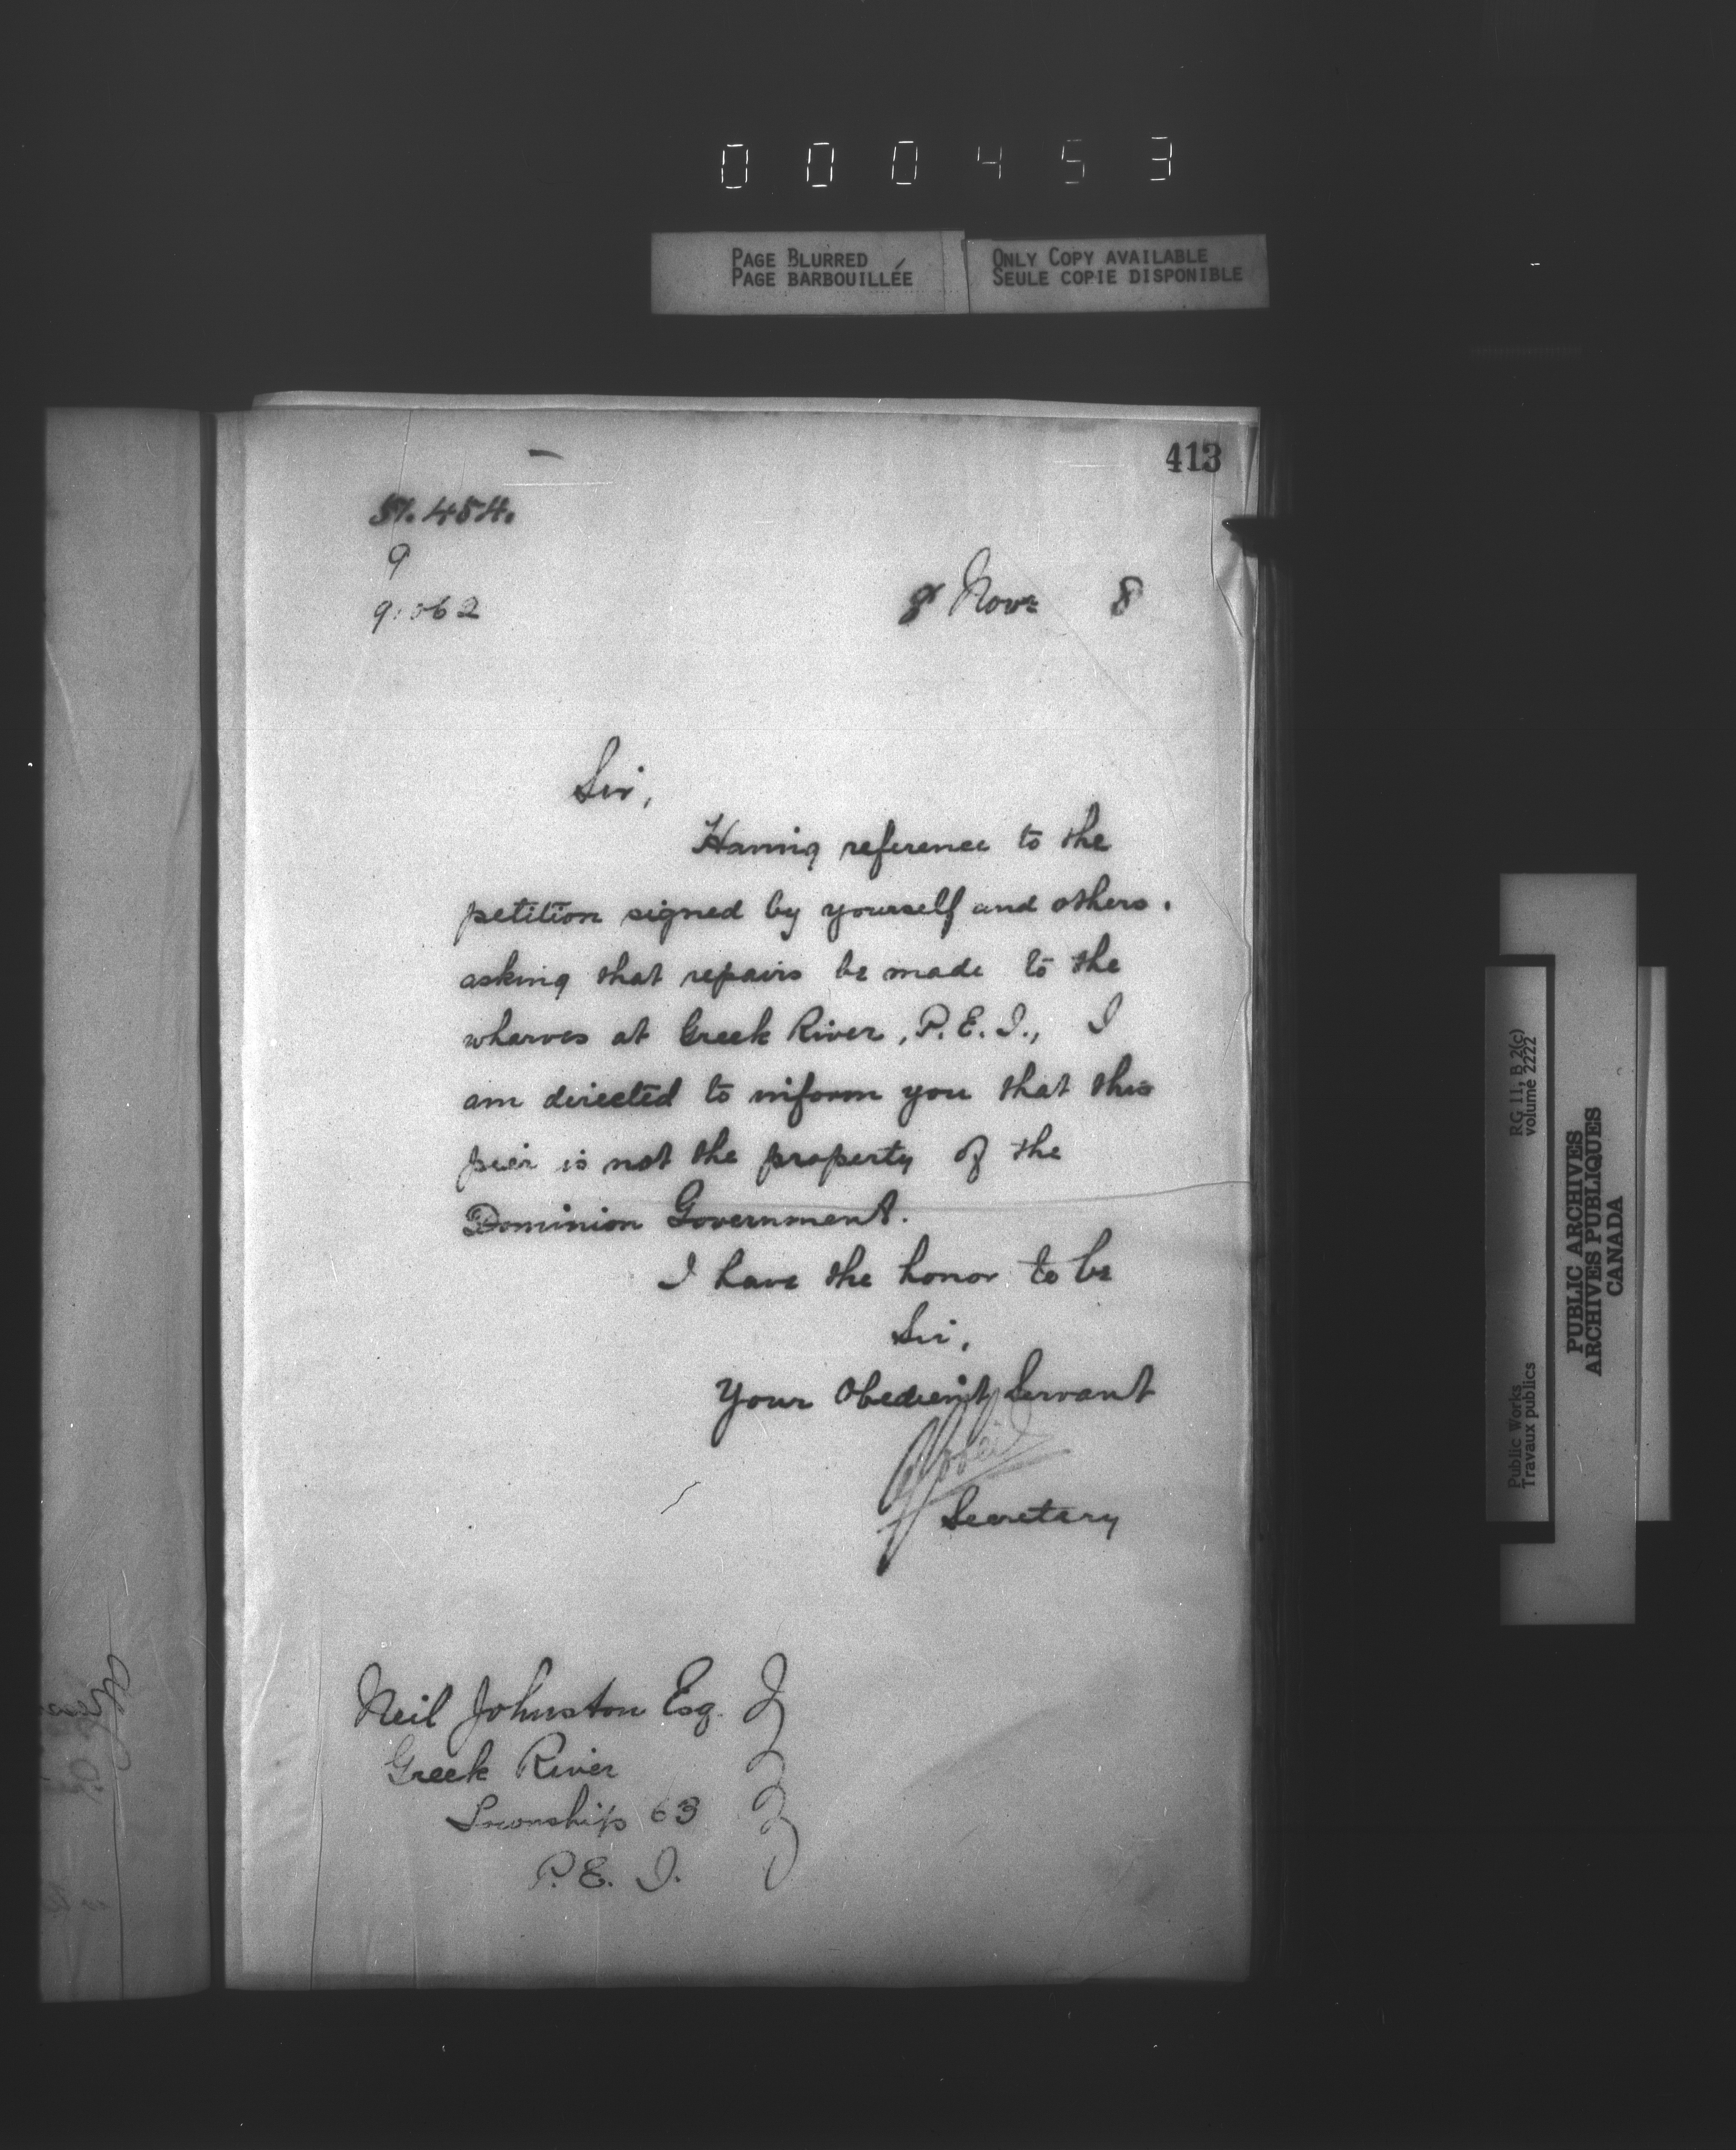 000453
PAGE BLURRED
PAGE BARBOUILLÉE
ONLY COPY AVAILABLE
SEULE COPIE DISPONIBLE
413
51.454.
9
9.062
8 Nov. 8
Sir,
Having reference to the
petition signed by yourself and others.
asking that repairs be made to the
wharves at Greek River, P.E.I., I
am directed to inform you that this
pier is not the property of the
Dominion Government.
I have the honor to be
Sir,
Your Obedient Servant
Secretary
Neil Johnston Esq.
Greek River
Township 63
P.E.I.
RG 11, B 2(c)
volume 2222
Public Works
Travaux publics
PUBLIC ARCHIVES
ARCHIVES PUBLIQUES
CANADA